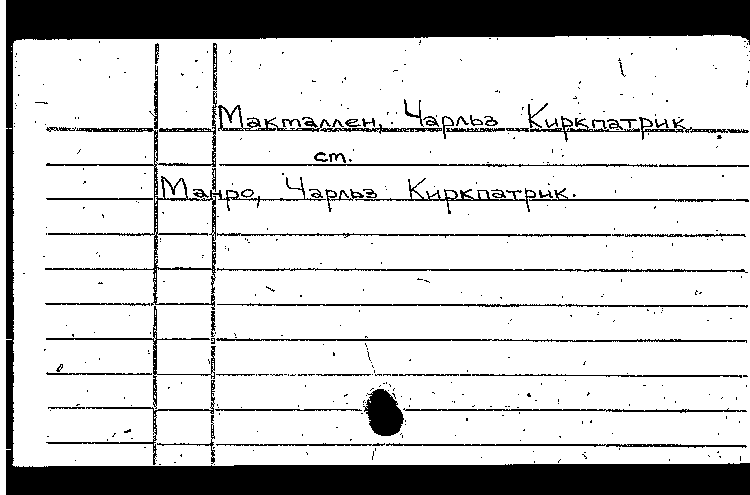 Макmаллен, Чарльз Киркпатрик
ст.
Манро, Чарльз Киркпатрик.